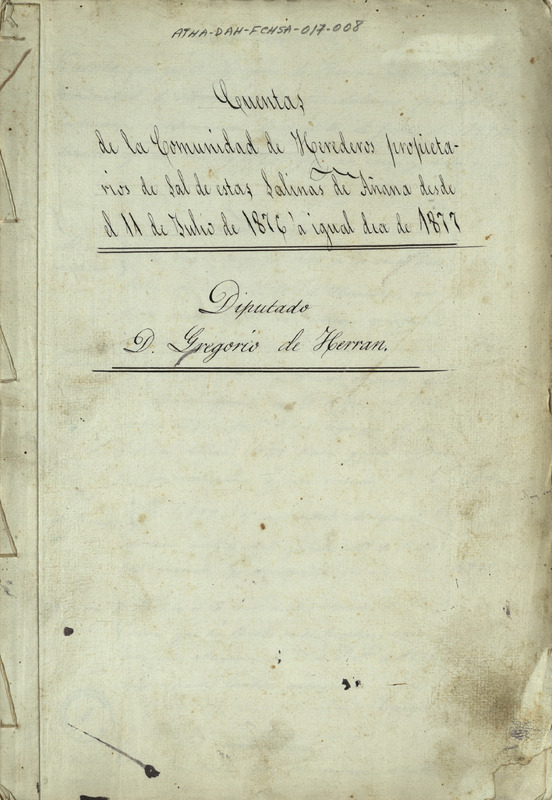 ATHA-DAH-FCHSA-017-008
Cuentas
de la Comunidad de Herederos propieta-
rios de Sal de estas Salinas de Añana desde
el 11 de Julio de 1876 à igual dia de 1877
Diputado
D. Gregorio de Herran.